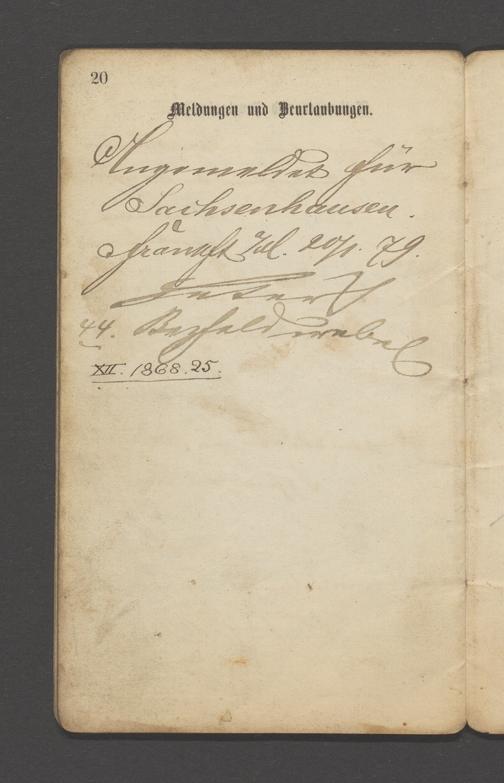 20
Meldungen und Beurlaubungen.
Angemeldet für
Sachsenhausen.
Frankft 20/1. 79.
44. Bezfeldwebel
XII. 1868.25.